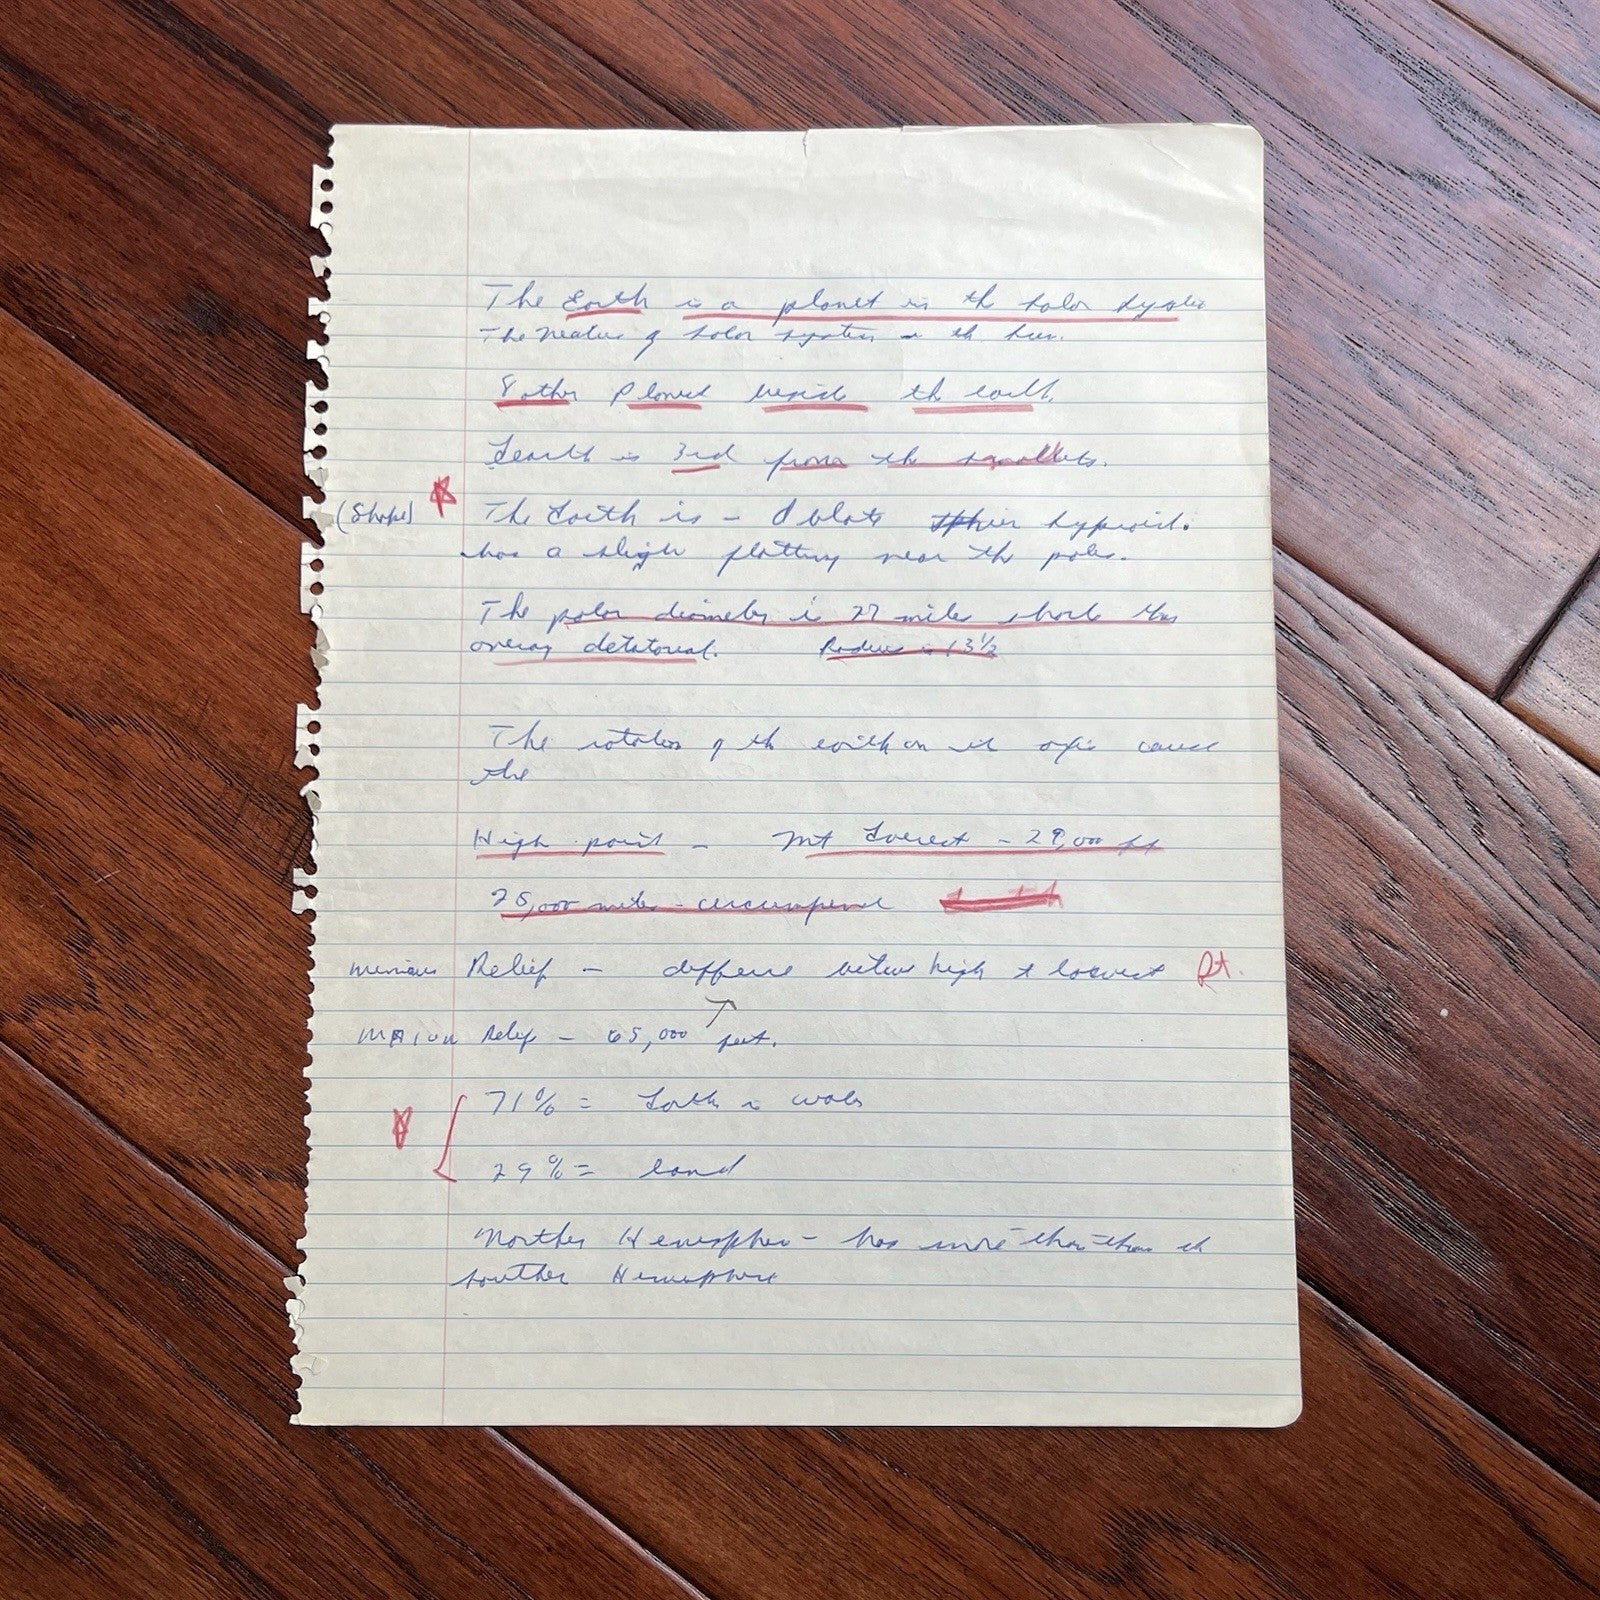 The Earth is a planet in the solar system
The Nucleus of solar system is the sun.
8 other planets beside the earth
Earth is 3rd from the smallest.
(Shape) The Earth is – Oblate spheroid.
has a sligh flatting near the poles.
The polar diameter is 27 miles shorter than
Radius is 13½
The rotation of the earth on it axis cause
the
High point – Mt Everest – 29,000 ft
25,000 miles – circumference
Relief – difference between high & lowest Pt.
Relief – 65,000 feet.
71% = Earth is water
29% = land
Northern Hemisphere – has more than the
southern Hemisphere